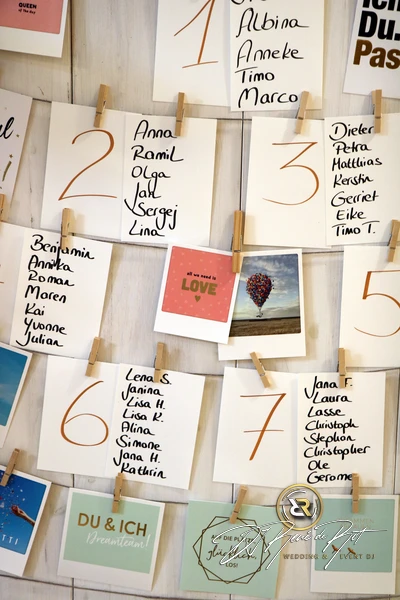 QUEEN
of the Day
1
Albina
Anneke
Timo
Marco
Du.
2
Anna
Ramil
Olga
Jan
Sergej
Lina
3
Dieter
Petra
Matthias
Kerstin
Gerriet
Eike
Timo T.
Benjamin
Annika
Roman
Maren
Kai
Yvonne
Julian
all we need is
LOVE
5
6
Lena S.
Janina
Lisa H.
Lisa K.
Alina
Simone
Jana H.
Kathrin
7
Jana F.
Laura
Lasse
Christoph
Stephan
Christopher
Ole
Gerome
DU & ICH
Dreamteam!
DIE PLÄTZE
glücklich,
LOS!
WEDDING & EVENT DJ